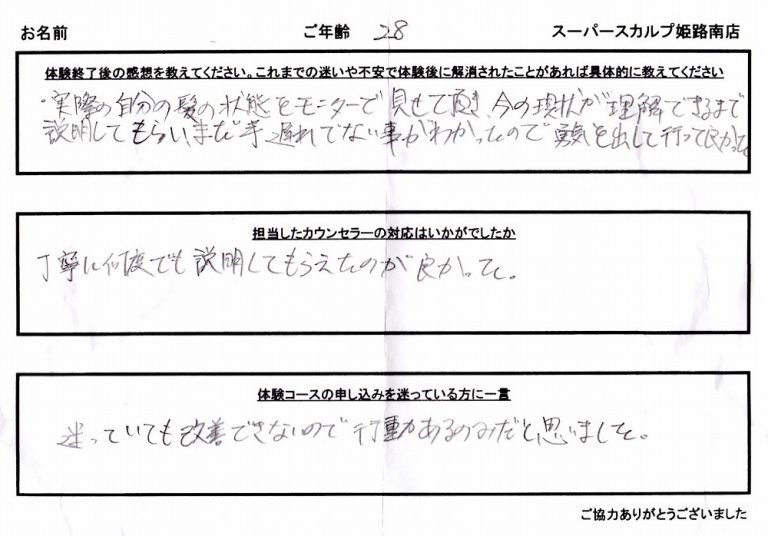 お名前 ご年齢 28 スーパースカルプ姫路南店
体験終了後の感想を教えてください。これまでの迷いや不安で体験後に解消されたことがあれば具体的に教えてください
・実際の自分の髪の状態をモニターで見せて頂き、今の現状が理解できるまで
説明してもらい、まだ手遅れでない事がわかったので勇気を出して行って良かった。
担当したカウンセラーの対応はいかがでしたか
丁寧に何度でも説明してもらえたのが良かった。
体験コースの申し込みを迷っている方に一言
迷っていても改善できないので行動あるのみだと思いました。
ご協力ありがとうございました